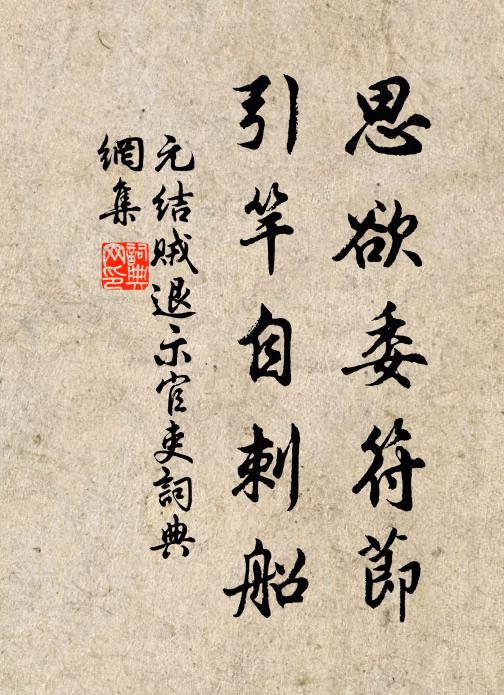 思欲委符節
引竿自刺船
元结贼退示官吏詞典
網集
詞典网印